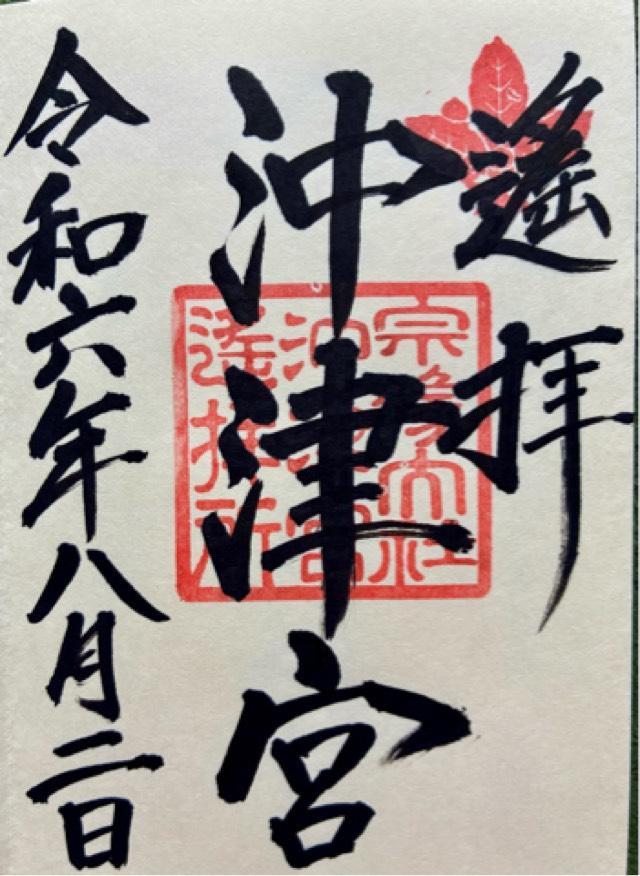 遙拝
沖津宮
令和六年八月二日
宗像大社
沖津宮
遙拝所